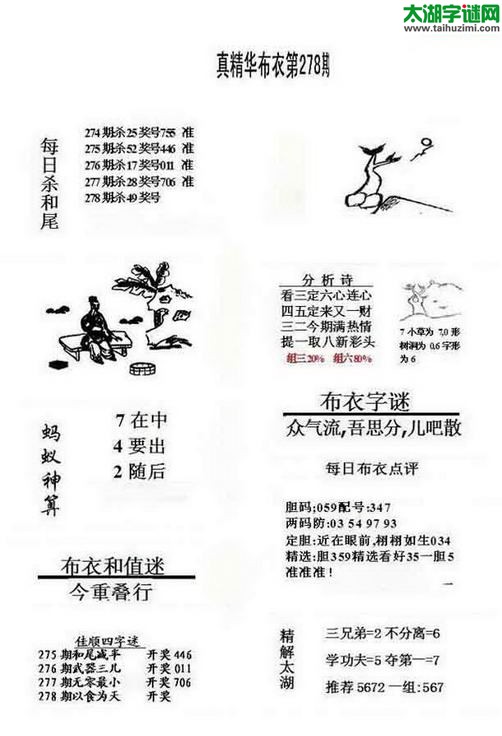 太湖字谜网
www.taihuzimi.com
真精华布衣第278期
每日杀和尾
274期杀25奖号755 准
275期杀52奖号446 准
276期杀17奖号011 准
277期杀28奖号706 准
278期杀49奖号
分析诗
看三定六心连心
四五定来又一财
三二今期满热情
提一取八新彩头
组三20% 组六80%
7小草为 7,0形
树洞为 0,6字形
为6
蚂蚁神算
7在中
4要出
2随后
布衣字谜
众气流,吾思分,儿吧散
每日布衣点评
胆码;059配号:347
两码防:03 54 97 93
定胆:近在眼前,栩栩如生034
精选:胆359精选看好35一胆5
准准准!
布衣和值迷
今重叠行
佳顺四字迷
275期和尾减半 开奖446
276期武器三儿 开奖011
277期无零最小 开奖706
278期以食为天 开奖
精解太湖
三兄弟=2 不分离=6
学功夫=5 夺第一=7
推荐5672一组:567